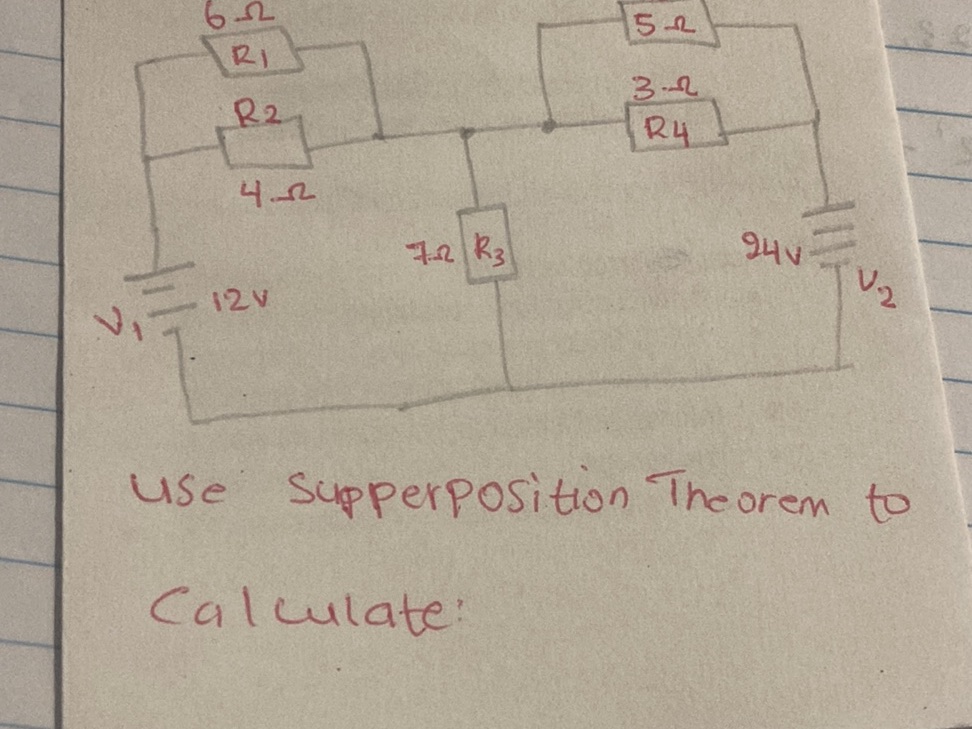 6Ω
R1
R2
4Ω
5Ω
3Ω
R4
7Ω R3
V1 12V
24V
V2
Use Supperposition Theorem to
Calculate: